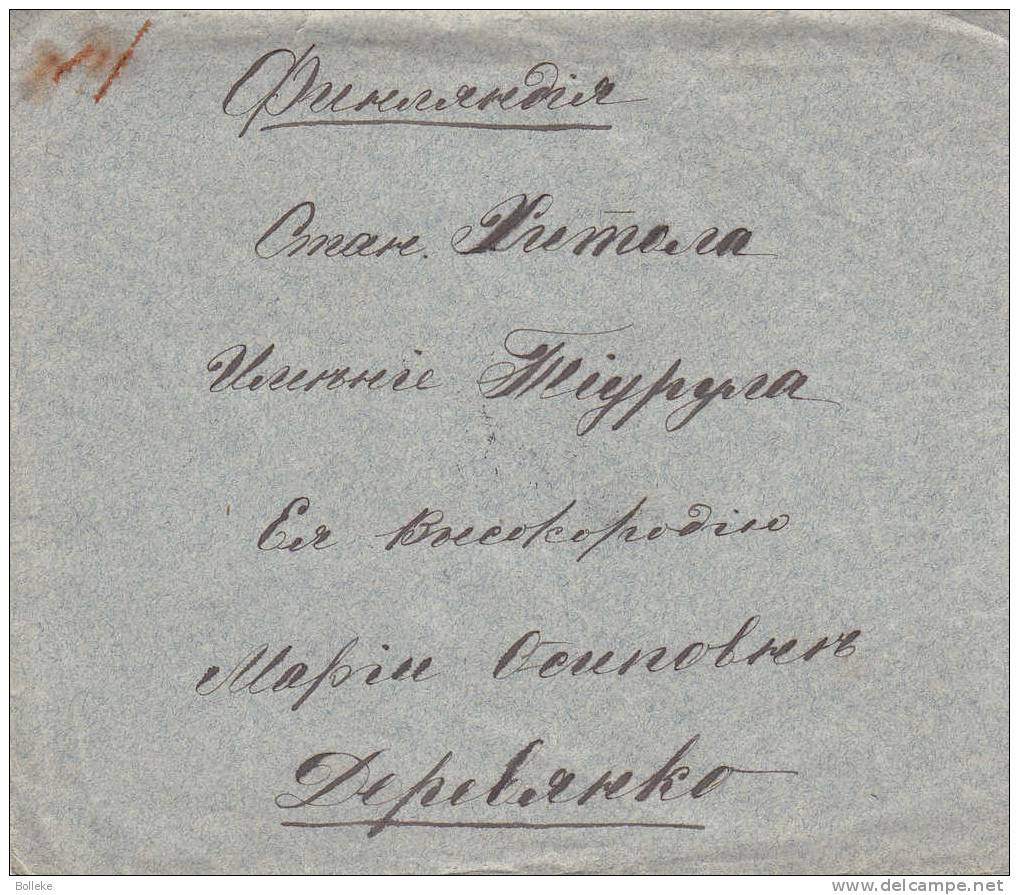 Финляндія
Стан. Хитола
Имѣніе Тіурула
Ея Высокородію
Маріи Осиповнѣ
Деревянко
Bolleke
delcampe.net